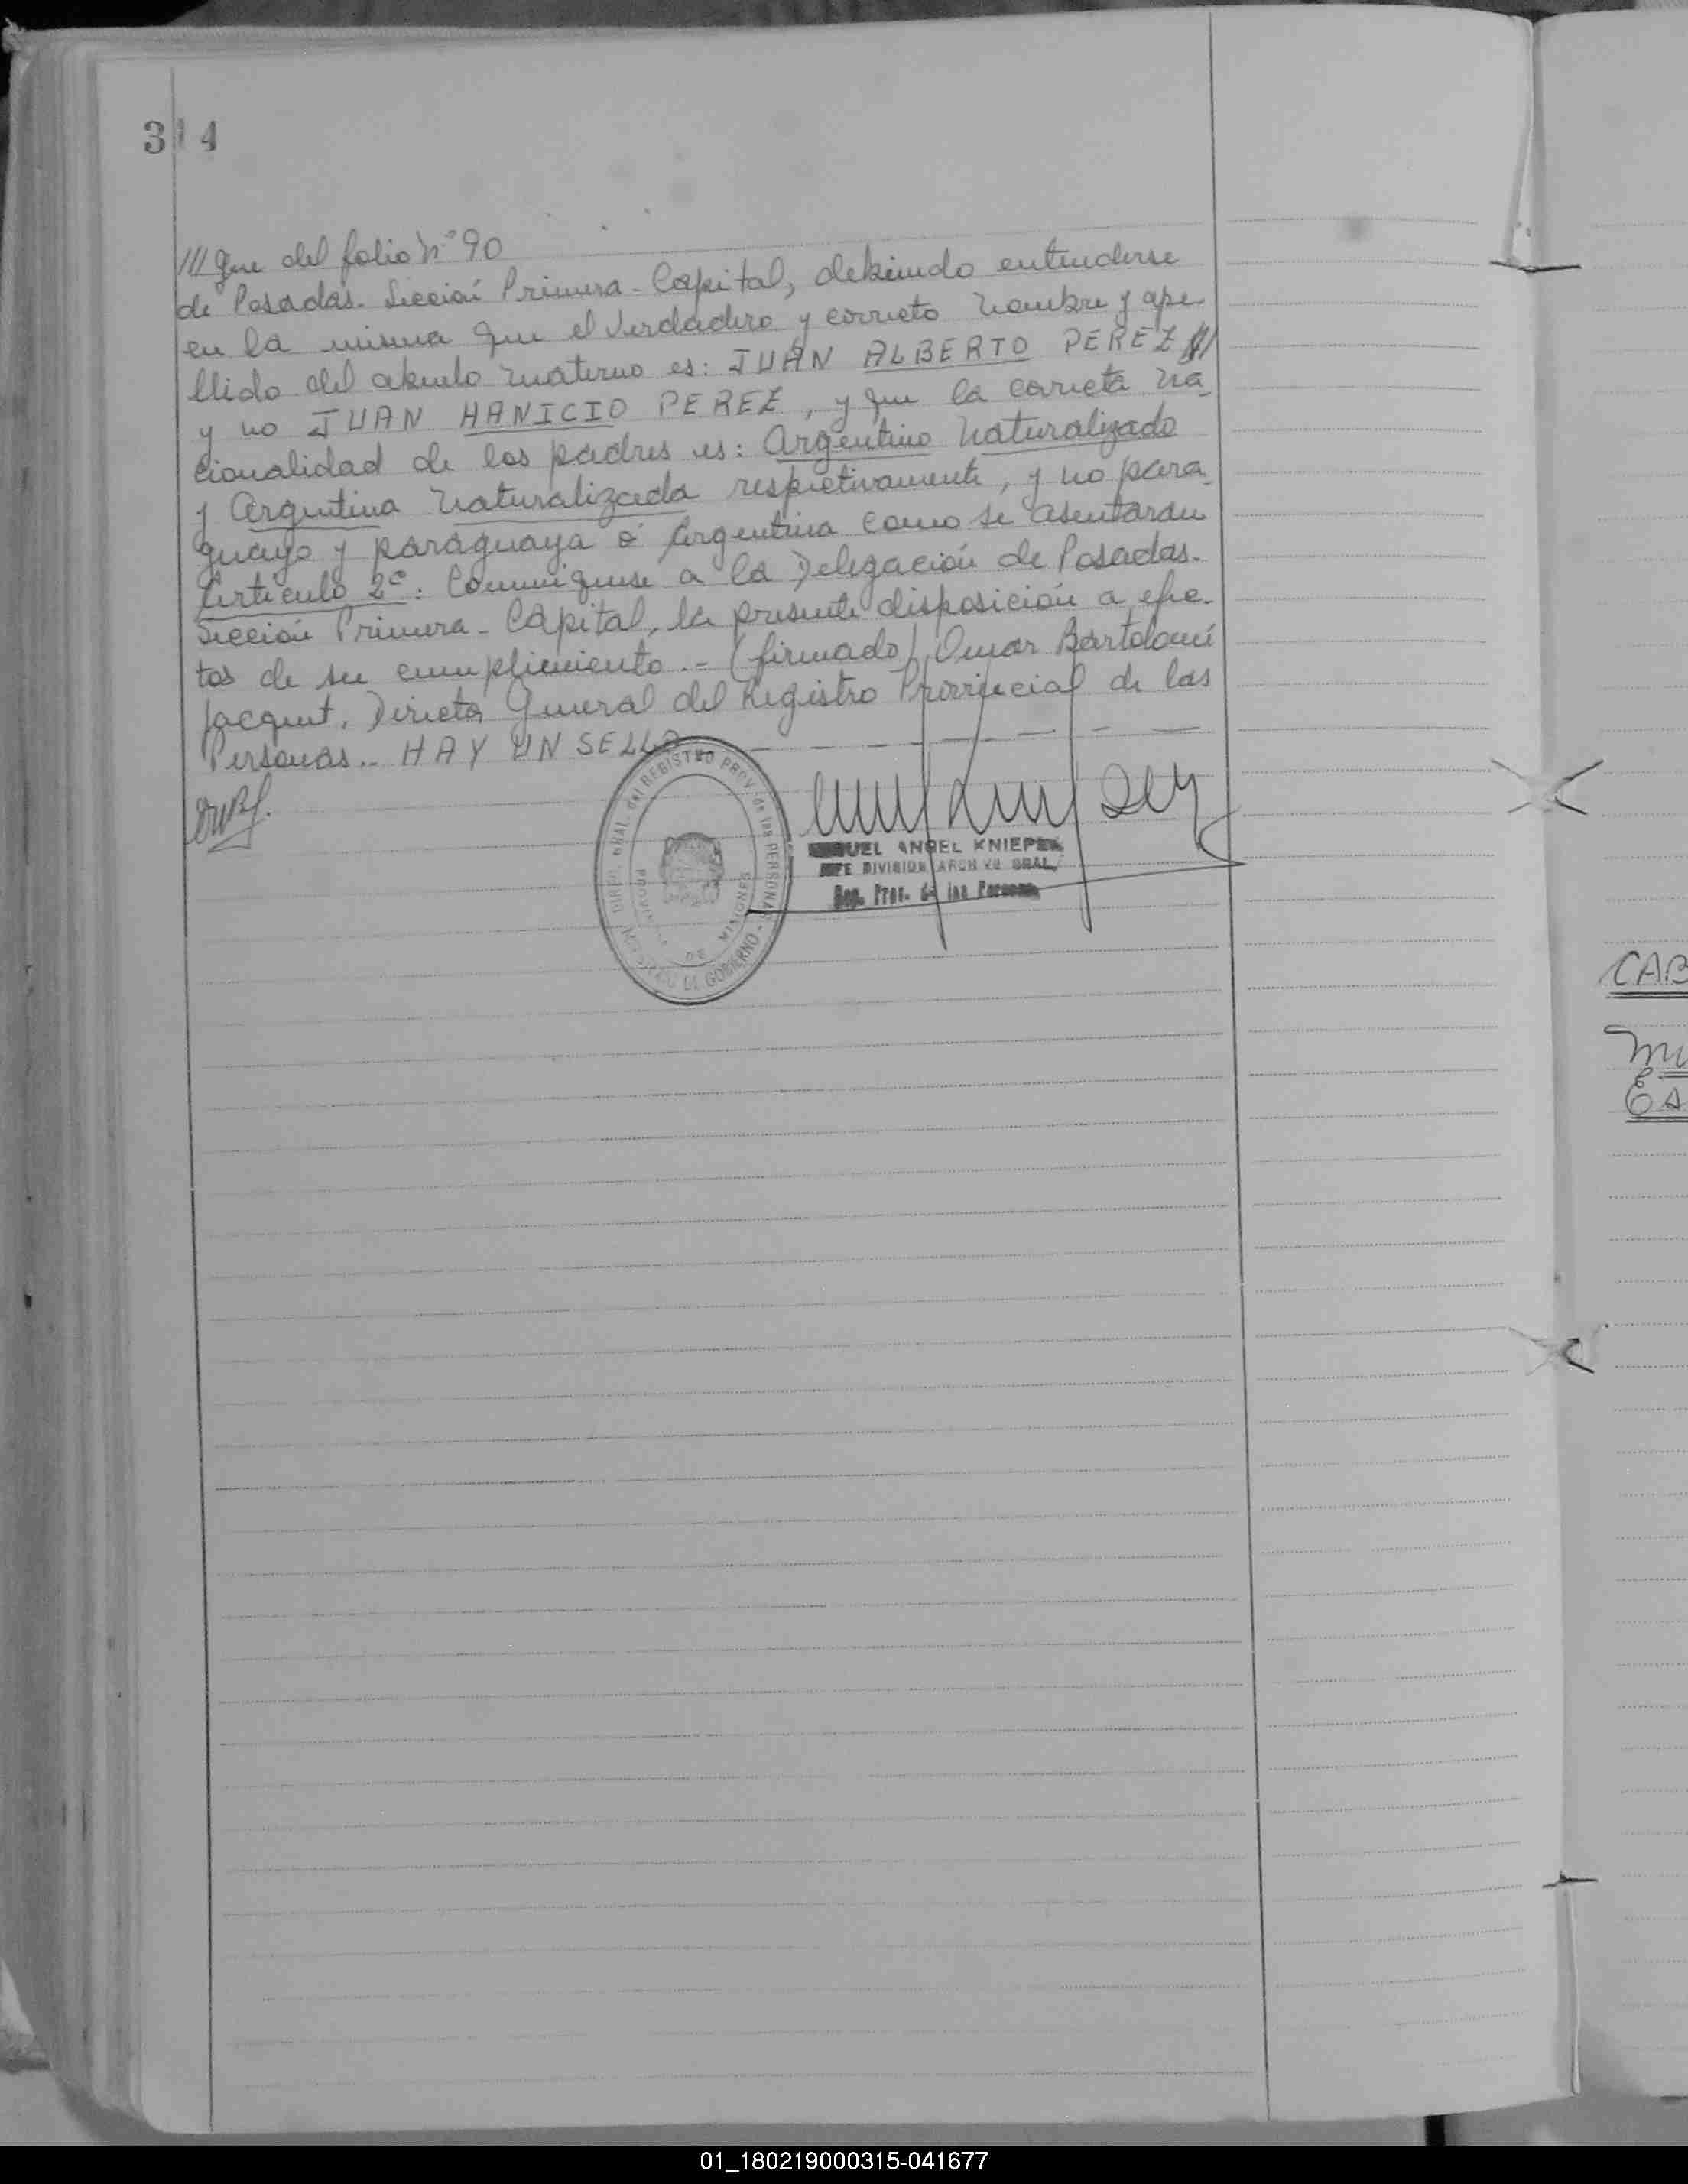 314
/// gue del folio Nº 90
de Posadas. Sección Primera - Capital, debiendo entenderse
en la misma que el verdadero y correcto nombre y ape-
llido del abuelo materno es: JUAN ALBERTO PEREZ
y no JUAN HANICIO PEREZ, y que la correcta na-
cionalidad de los padres es: Argentino Naturalizado
y Argentina Naturalizada respectivamente, y no para-
guayo y paraguaya ó Argentina como se asentaran
Artículo 2º: Comuníquese a la Delegación de Posadas.
Sección Primera - Capital, la presente disposición a efec-
tos de su cumplimiento .- (firmado) Omar Bartolomé
Jacquet, Director General del Registro Provincial de las
Personas.. HAY UN SELLO
DIREC. GRAL. del REGISTRO PROV. de las PERSONAS
MINISTERIO DE GOBIERNO -
PROVINCIA DE MISIONES
MIGUEL ANGEL KNIEPER
JEFE DIVISION ARCHIVO GRAL.
Reg. Prov. de las Personas
CAB
01_180219000315-041677